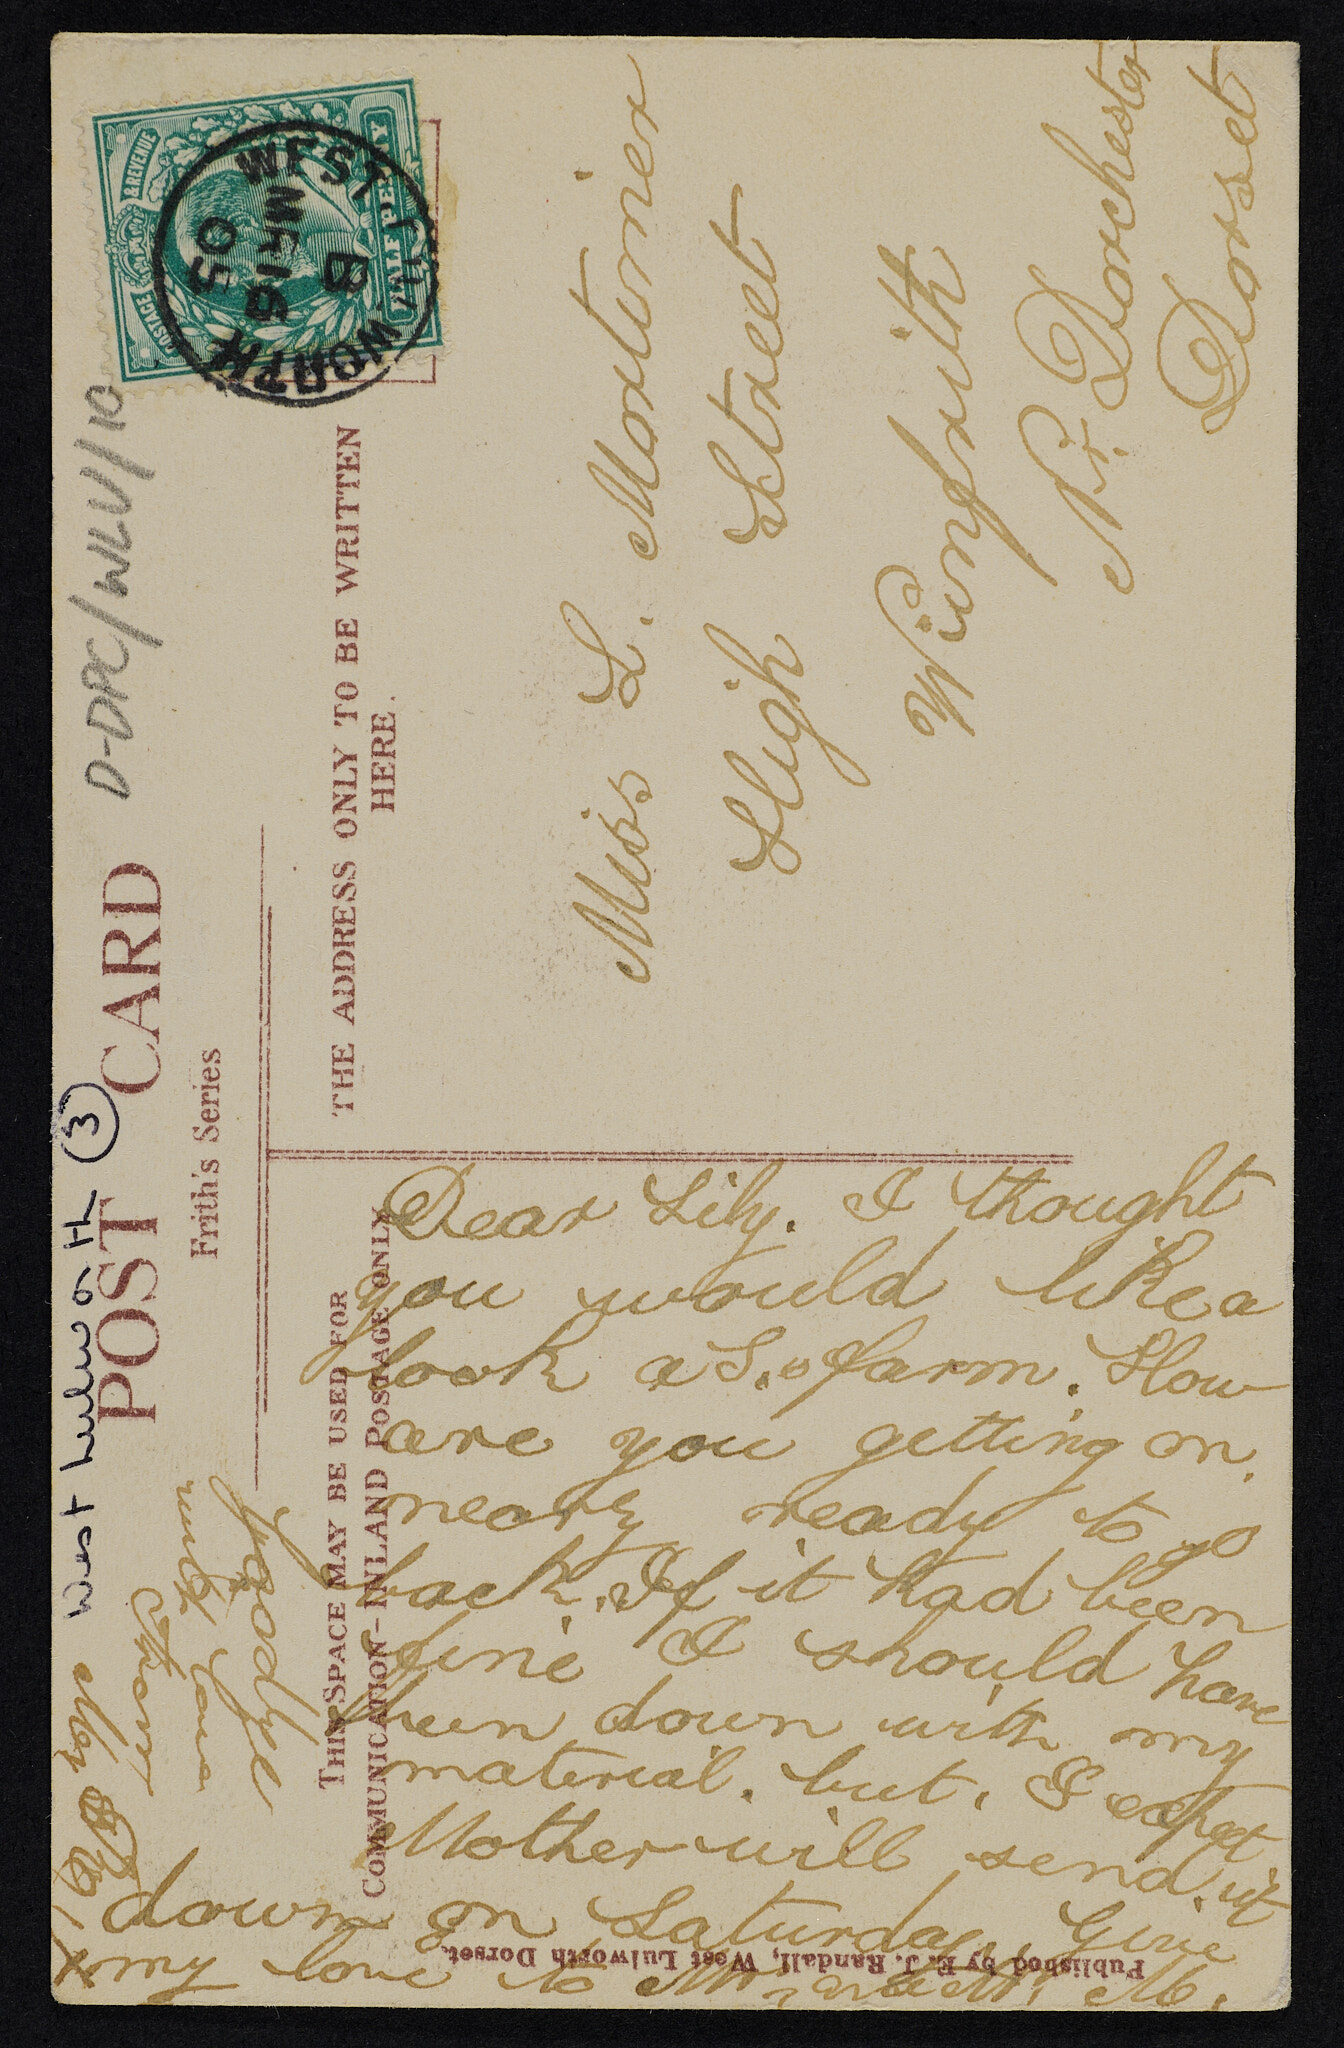 West Lulworth ③
POST CARD
D-DPC/WLU/1/10
Frith's Series
THE ADDRESS ONLY TO BE WRITTEN
HERE.
THIS SPACE MAY BE USED FOR
COMMUNICATION-INLAND POSTAGE ONLY
POSTAGE & REVENUE
HALFPENNY
WEST LULWORTH
B
MR 16
05
Miss L. Mortimer
High Street
Winfrith
Nr. Dorchester
Dorset
Dear Lily. I thought
you would like a
look a S. farm. How
are you getting on.
neary ready to go
back. If it had been
fine I should have
been down with my
material. but. I expect
Mother will send it
down on Saturday. Give
my love to Mr M.
Goodbye
with love
from
Published by E. J. Randall, West Lulworth Dorset.